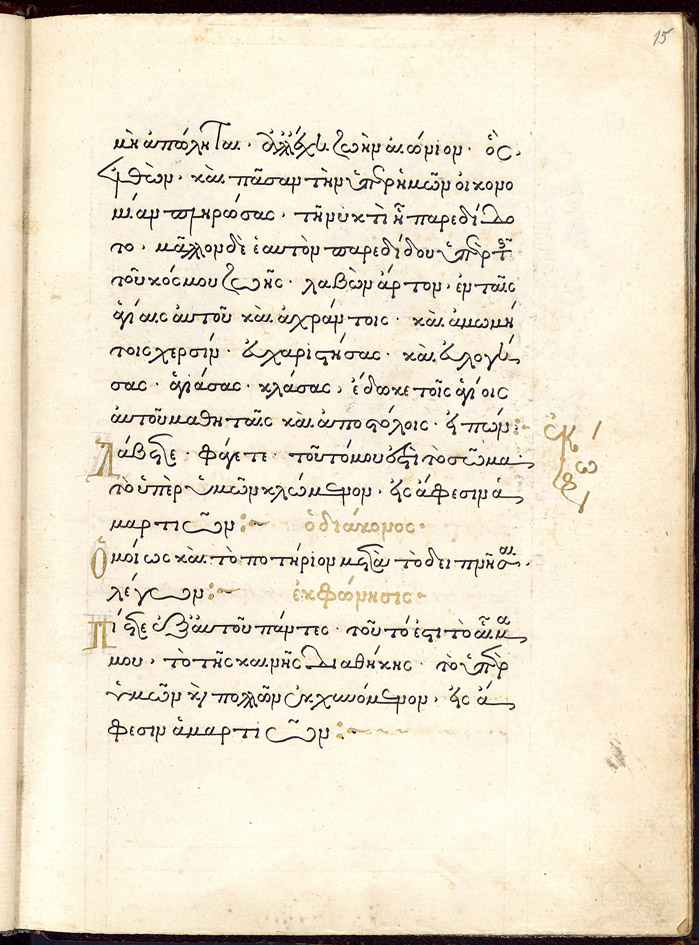 15
μὴ ἀπώληται· ἀλλ' ἔχει ζωὴν αἰώνιον· ὃς
ἐλθὼν· καὶ πᾶσαν τὴν ὑπὲρ ἡμῶν οἰκονο
μίαν πληρώσας· τῇ νυκτὶ ᾗ παρεδίδο
το· μᾶλλον δὲ ἑαυτὸν παρεδίδου ὑπὲρ τῆς
τοῦ κόσμου ζωῆς· λαβὼν ἄρτον· ἐν ταῖς
ἁγίαις αὐτοῦ καὶ ἀχράντοις· καὶ ἀμωμή
τοις χερσὶν· εὐχαριστήσας· καὶ εὐλογή
σας· ἁγιάσας· κλάσας· ἔδωκε τοῖς ἁγίοις
αὐτοῦ μαθηταῖς καὶ ἀποστόλοις· εἰπών:~
Λάβετε· φάγετε· τοῦτό μου ἐστὶ τὸ σῶμα·
τὸ ὑπὲρ ὑμῶν κλώμενον· εἰς ἄφεσιν ἁ
μαρτιῶν:~ ὁ διάκονος·
Ὁμοίως καὶ τὸ ποτήριον μετὰ τὸ δειπνῆσαι·
λέγων:~ ἐκφώνησις~
Πίετε ἐξ αὐτοῦ πάντες· τοῦτό ἐστι τὸ αἷμα
μου· τὸ τῆς καινῆς διαθήκης· τὸ ὑπὲρ
ὑμῶν καὶ πολλῶν ἐκχυνόμενον· εἰς ἄ
φεσιν ἁμαρτιῶν:~